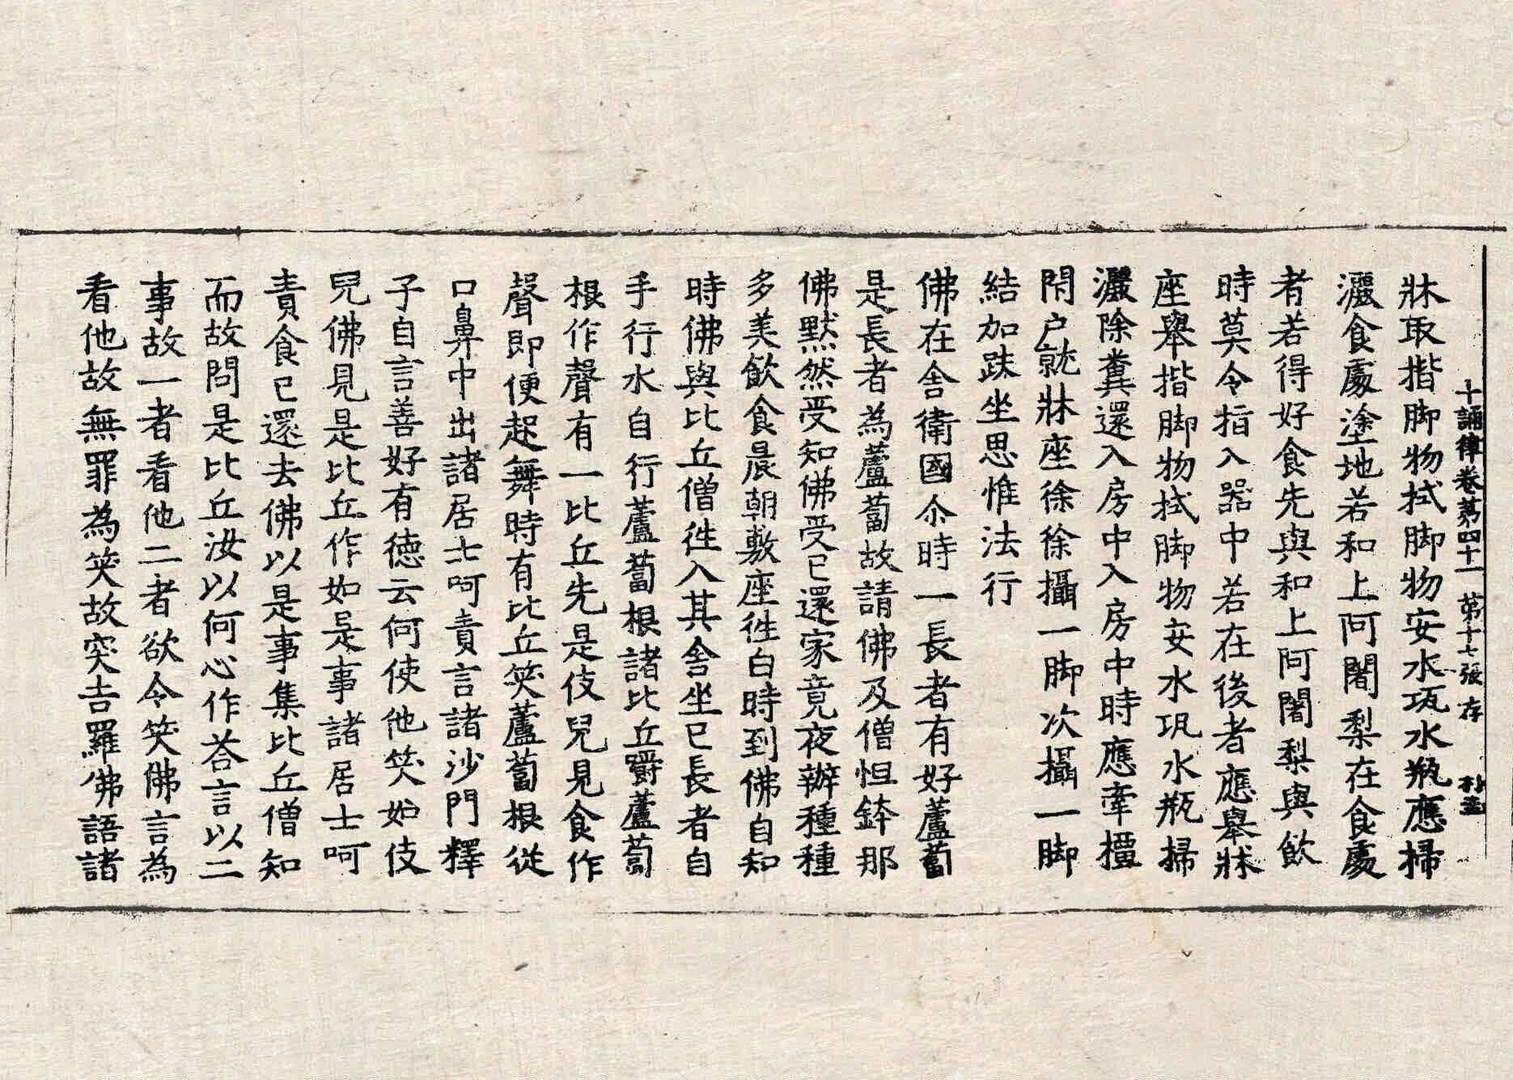 十誦律卷苐四十一 第十七張 存
牀取揩脚物拭脚物安水瓨水瓶應掃
灑食處塗地若和上阿闍梨在食處
者若得好食先與和上阿闍梨與飲
時莫令指入器中若在後者應舉牀
座舉揩脚物拭脚物安水瓨水瓶掃
灑除糞還入房中入房中時應牽橝
閇户就牀座徐徐攝一脚次攝一脚
結加趺坐思惟法行
佛在舍衛國尒時一長者有好蘆蔔
是長者為蘆蔔故請佛及僧怛鉢那
佛默然受知佛受已還家竟夜辦種種
多美飲食晨朝敷座徃白時到佛自知
時佛與比丘僧徃入其舍坐已長者自
手行水自行蘆蔔根諸比丘嚼蘆蔔
根作聲有一比丘先是伎兒見食作
聲即便起舞時有比丘笑蘆蔔根從
口鼻中出諸居士呵責言諸沙門釋
子自言善好有德云何使他笑如伎
兒佛見是比丘作如是事諸居士呵
責食已還去佛以是事集比丘僧知
而故問是比丘汝以何心作荅言以二
事故一者看他二者欲令笑佛言為
看他故無罪為笑故突吉羅佛語諸